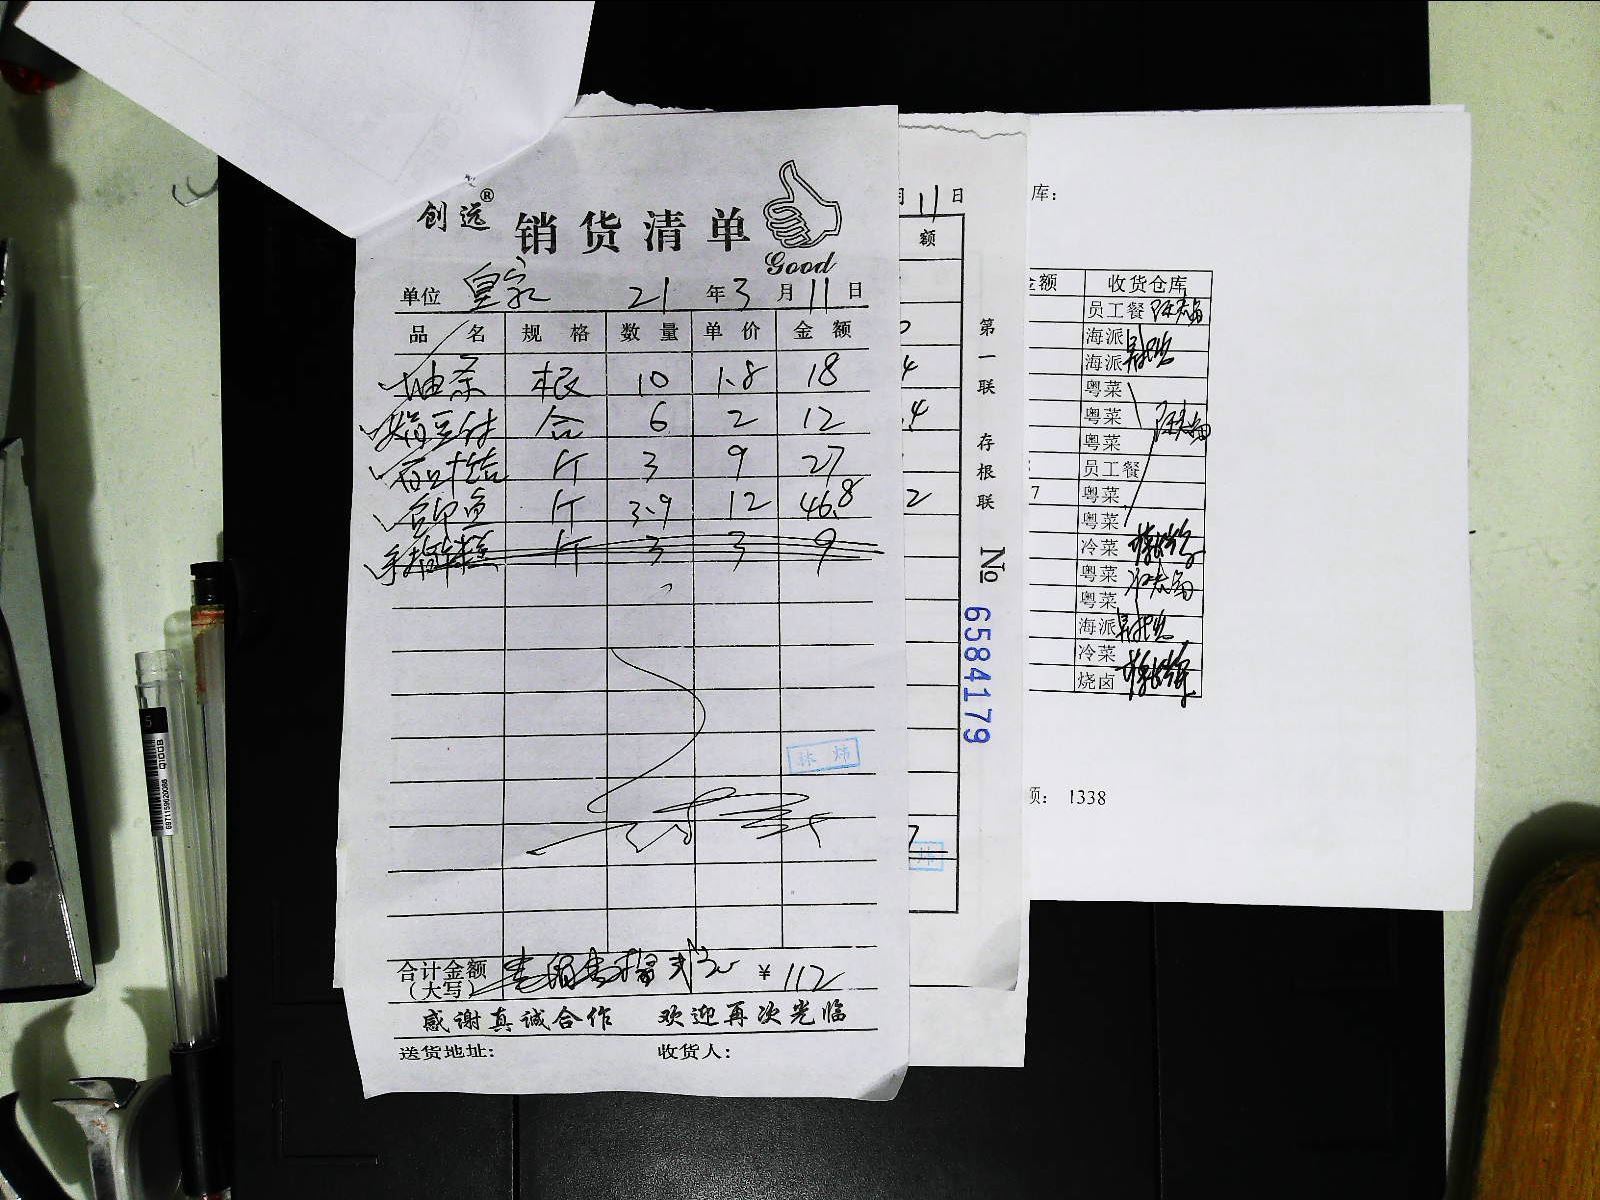 创远® 销货清单
Good
单位 皇家 21 年 3 月 11 日
品 名 规 格 数 量 单 价 金 额
油条 根 10 1.8 18
绢豆付 合 6 2 12
百叶结 斤 3 9 27
仓印鱼 斤 3.9 12 46.8
斤 3 3 9
林 炜
合计金额
(大写) ¥ 112
感谢真诚合作 欢迎再次光临
送货地址: 收货人:
月 11 日
额
4
.4
2
7
炜
第一联 存根联
№ 6584179
库:
金额 收货仓库
员工餐
海派
海派
粤菜
粤菜
粤菜
员工餐
7 粤菜
粤菜
冷菜
粤菜
粤菜
海派
冷菜
烧卤
额: 1338
5
Q100B
6971159020086